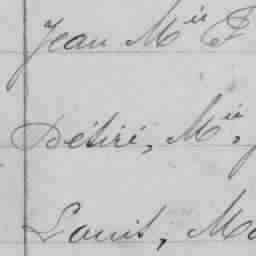 Jean Mie
Désiré, Mie,
Louis, Ma